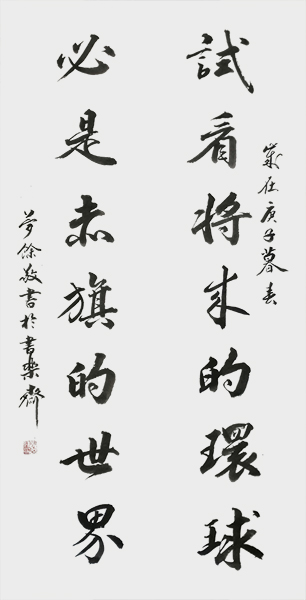 試看將来的環球
歲在庚子暮春
必是赤旗的世界
夢餘敬書於書樂齋